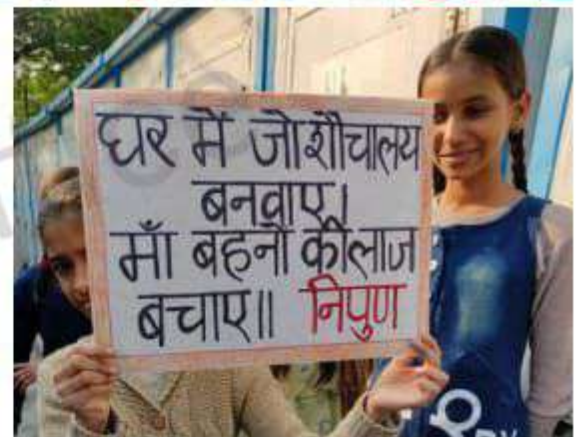 घर में जो शौचालय
बनवाए।
माँ बहनों की लाज
बचाए॥ निपुण